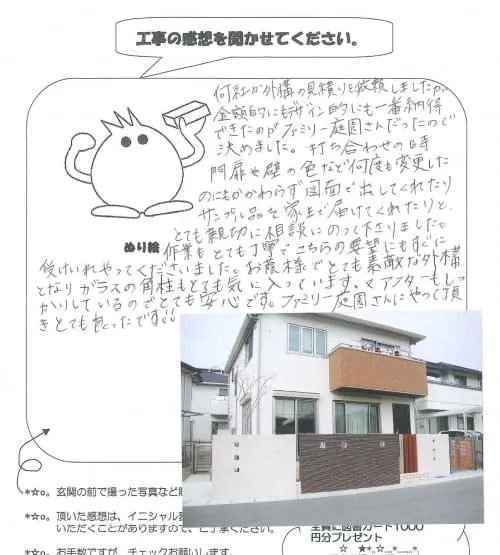 工事の感想を聞かせてください。
何社か外構の見積りを依頼しましたが、
金額的にもデザイン的にも一番納得
できたのがファミリー庭園さんだったので
決めました。打ち合わせの時
門扉や壁の色など何度も変更した
のにもかかわらず図面で出してくれたり
サンプル品を家まで届けてくれたりと、
とても親切に相談にのって下さりました。
ぬり絵
作業もとても丁寧でこちらの要望にもすぐに
受けいれやってくださいました。お蔭様でとても素敵な外構
となりガラスの角柱もとても気に入っています。又アフターもしっ
かりしているのでとても安心です。ファミリー庭園さんにやって頂
きとても良かったです!!
*☆o。玄関の前で撮った写真など
*☆o。頂いた感想は、イニシャル
いただくことがありますので、ご了承ください。
*☆o。お手数ですが、チェックお願いします。
全員に図書カード1000
円分プレゼント